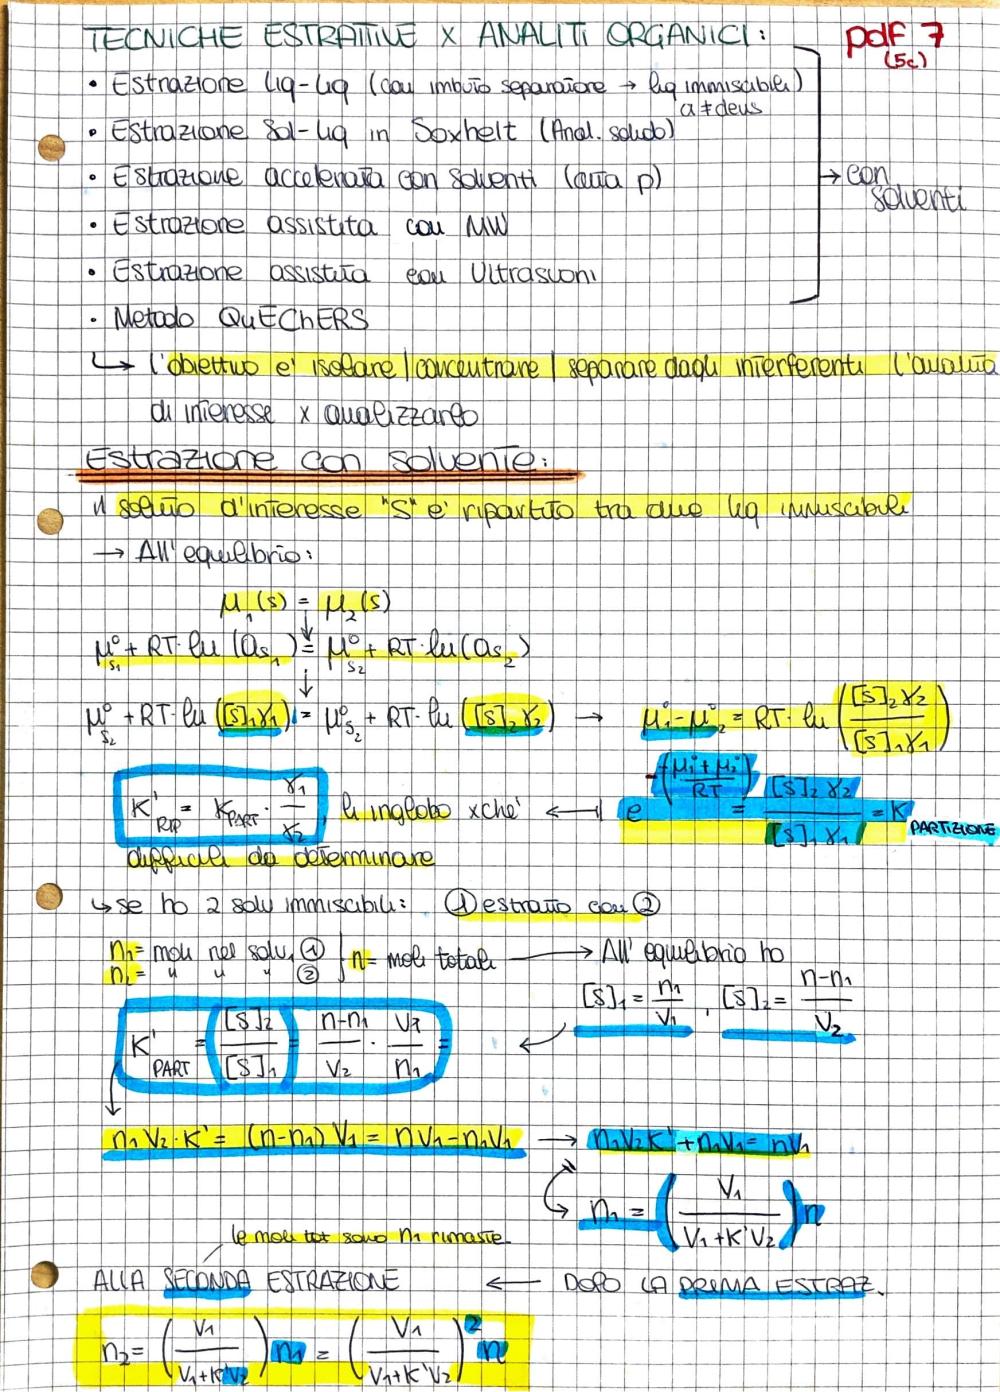 TECNICHE ESTRATTIVE X ANALITI ORGANICI:
pdf 7
(5c)
• Estrazione liq-liq (con imbuto separatore → liq immiscibili)
a ≠ dens
• Estrazione Sol-liq in Soxhelt (Anal. solido)
• Estrazione accelerata con solventi (alta p)
→ con
solventi
• Estrazione assistita con MW
• Estrazione assistita con Ultrasuoni
• Metodo QuEChERS
↳ l'obiettivo e' isolare | concentrare | separare dagli interferenti l'analita
di interesse x analizzarlo
Estrazione con solvente:
il soluto d'interesse "S" e' ripartito tra due liq immiscibili
→ All'equilibrio:
μ₁(s) = μ₂(s)
↓
μ°s₁ + RT·ln (as₁) = μ°s₂ + RT·ln(as₂)
↓
μ°s₂ + RT·ln ([S]₁γ₁) = μ°s₂ + RT·ln ([S]₂γ₂) → μ°₁-μ°₂ = RT·ln ([S]₂γ₂ / [S]₁γ₁)
K'RIP = KPART · γ₁/γ₂, li inglobo xche' ← e^-(μ°+μ°/RT) = [S]₂γ₂ / [S]₁γ₁ = K PARTIZIONE
difficili da determinare
↳ se ho 2 solv immiscibili: ① estratto con ②
n₁ = moli nel solv. ① | n = moli totali → All'equilibrio ho
n₂ = " " " ②
[S]₁ = n₁/V₁ , [S]₂ = n-n₁/V₂
K'PART = [S]₂/[S]₁ = n-n₁/V₂ · V₁/n₁ = ←
n₁V₂·K' = (n-n₁)V₁ = nV₁-n₁V₁ → n₁V₂K'+n₁V₁ = nV₁
n₁ = (V₁ / V₁+K'V₂) n
le moli tot sono n₁ rimaste
ALLA SECONDA ESTRAZIONE ← DOPO LA PRIMA ESTRAZ.
n₂ = (V₁ / V₁+K'V₂) n₁ = (V₁ / V₁+K'V₂)² n